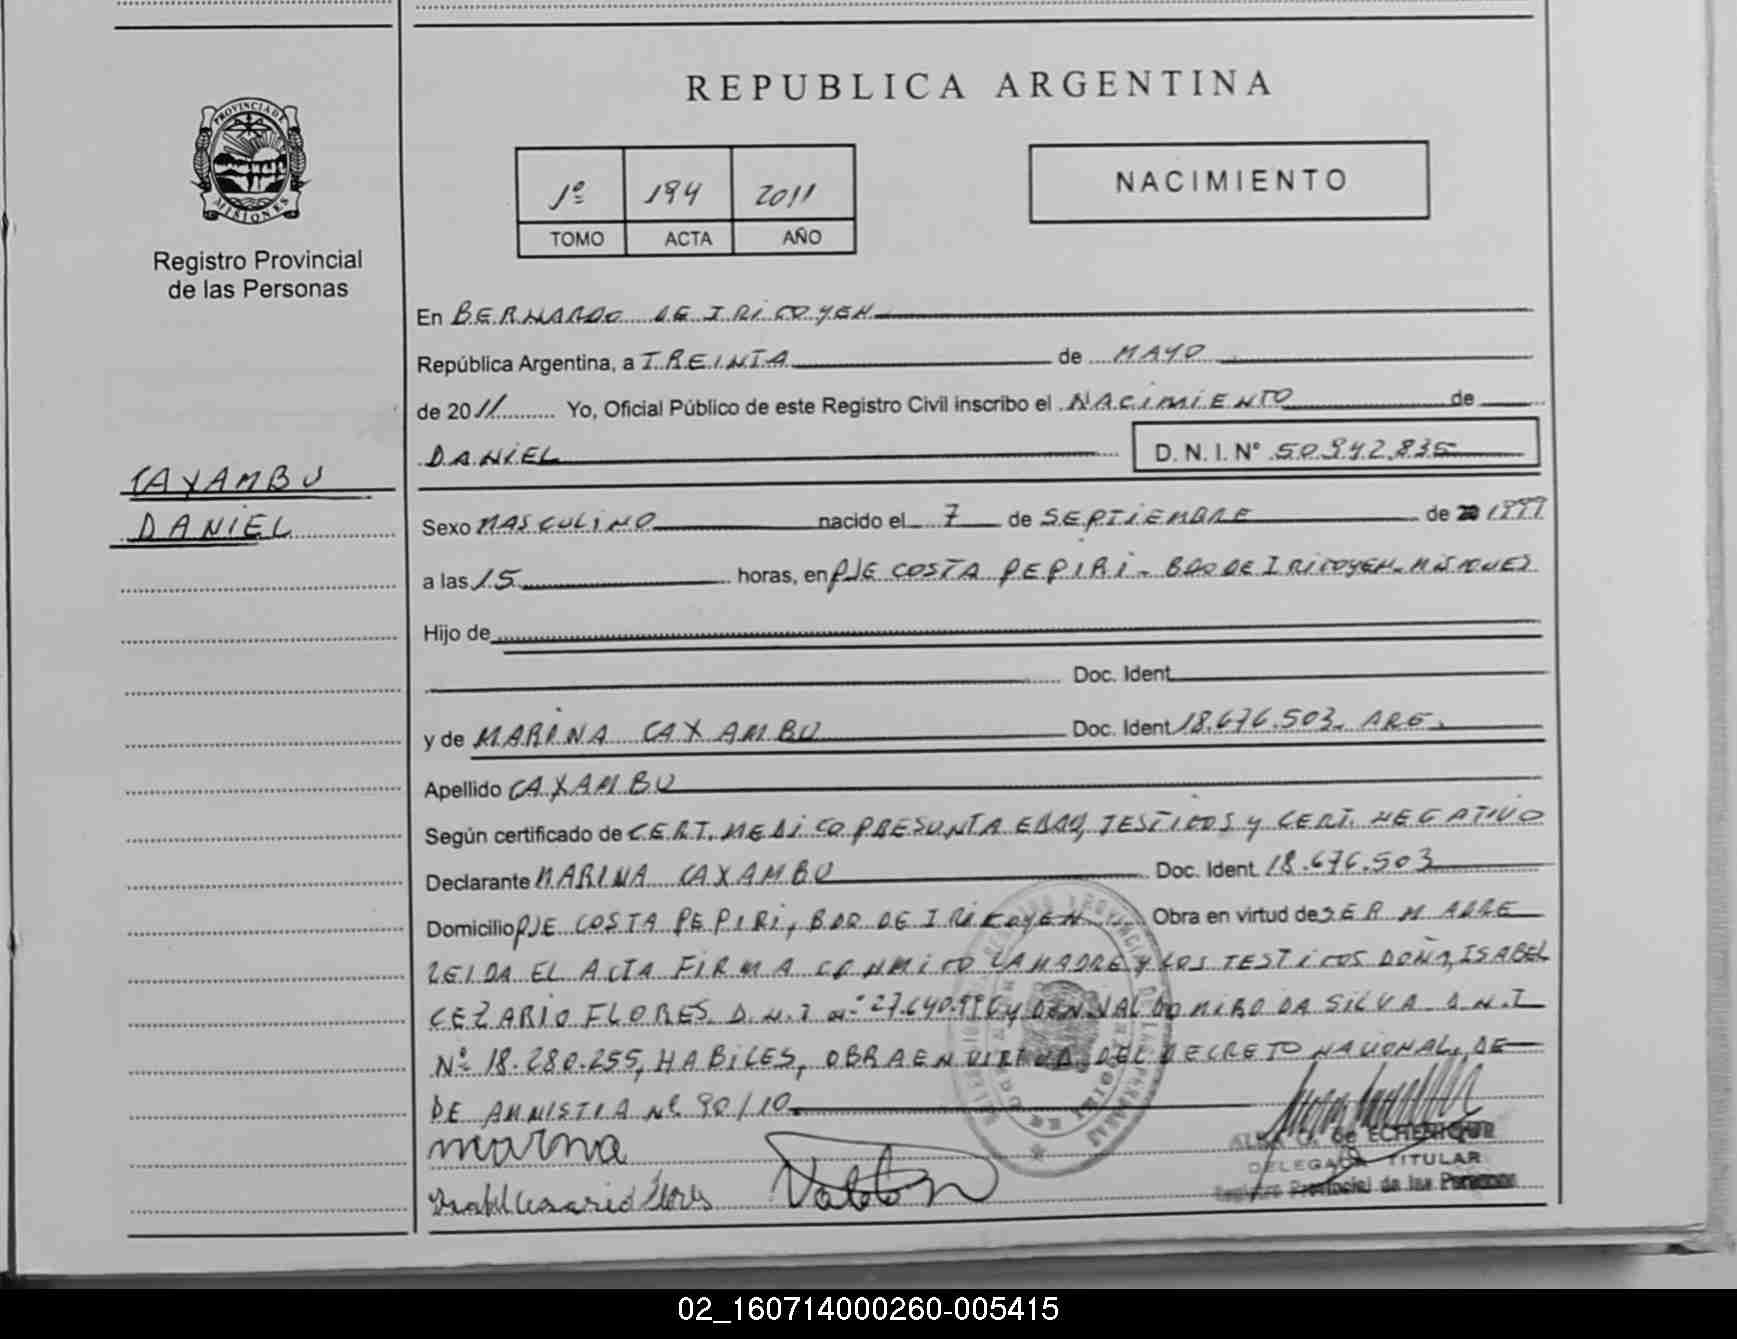 PROVINCIA DE
MISIONES
Registro Provincial
de las Personas
CAXAMBU
DANIEL
REPUBLICA ARGENTINA
1º 194 2011
TOMO ACTA AÑO
NACIMIENTO
En BERNARDO DE IRIGOYEN
República Argentina, a TREINTA de MAYO
de 2011 Yo, Oficial Público de este Registro Civil inscribo el NACIMIENTO de
DANIEL D. N. I. Nº 50.942.835
Sexo MASCULINO nacido el 7 de SEPTIEMBRE de 1999
a las 15 horas, en PJE COSTA PEPIRI - BDO DE IRIGOYEN - MISIONES
Hijo de
Doc. Ident
y de MARINA CAXAMBU Doc. Ident 18.676.503. ARG.
Apellido CAXAMBU
Según certificado de CERT. MEDICO PRESUNTA EDAD, TESTIGOS y CERT. NEGATIVO
Declarante MARINA CAXAMBU Doc. Ident 18.676.503
Domicilio PJE COSTA PEPIRI, BDO DE IRIGOYEN Obra en virtud de SER MADRE
LEIDA EL ACTA FIRMA CONMIGO LA MADRE y LOS TESTIGOS DOÑA, ISABEL
CEZARIO FLORES D.N.I Nº 27.640.996 y DON VALDOMIRO DA SILVA D.N.I
Nº 18.280.255, HABILES, OBRA EN VIRTUD DEL DECRETO NACIONAL, DE
DE AMNISTIA Nº 90/10
marina
Isabel Cesario Flores
ALBA de ECHENIQUE
DELEGADA TITULAR
Registro Provincial de las Personas
02_160714000260-005415